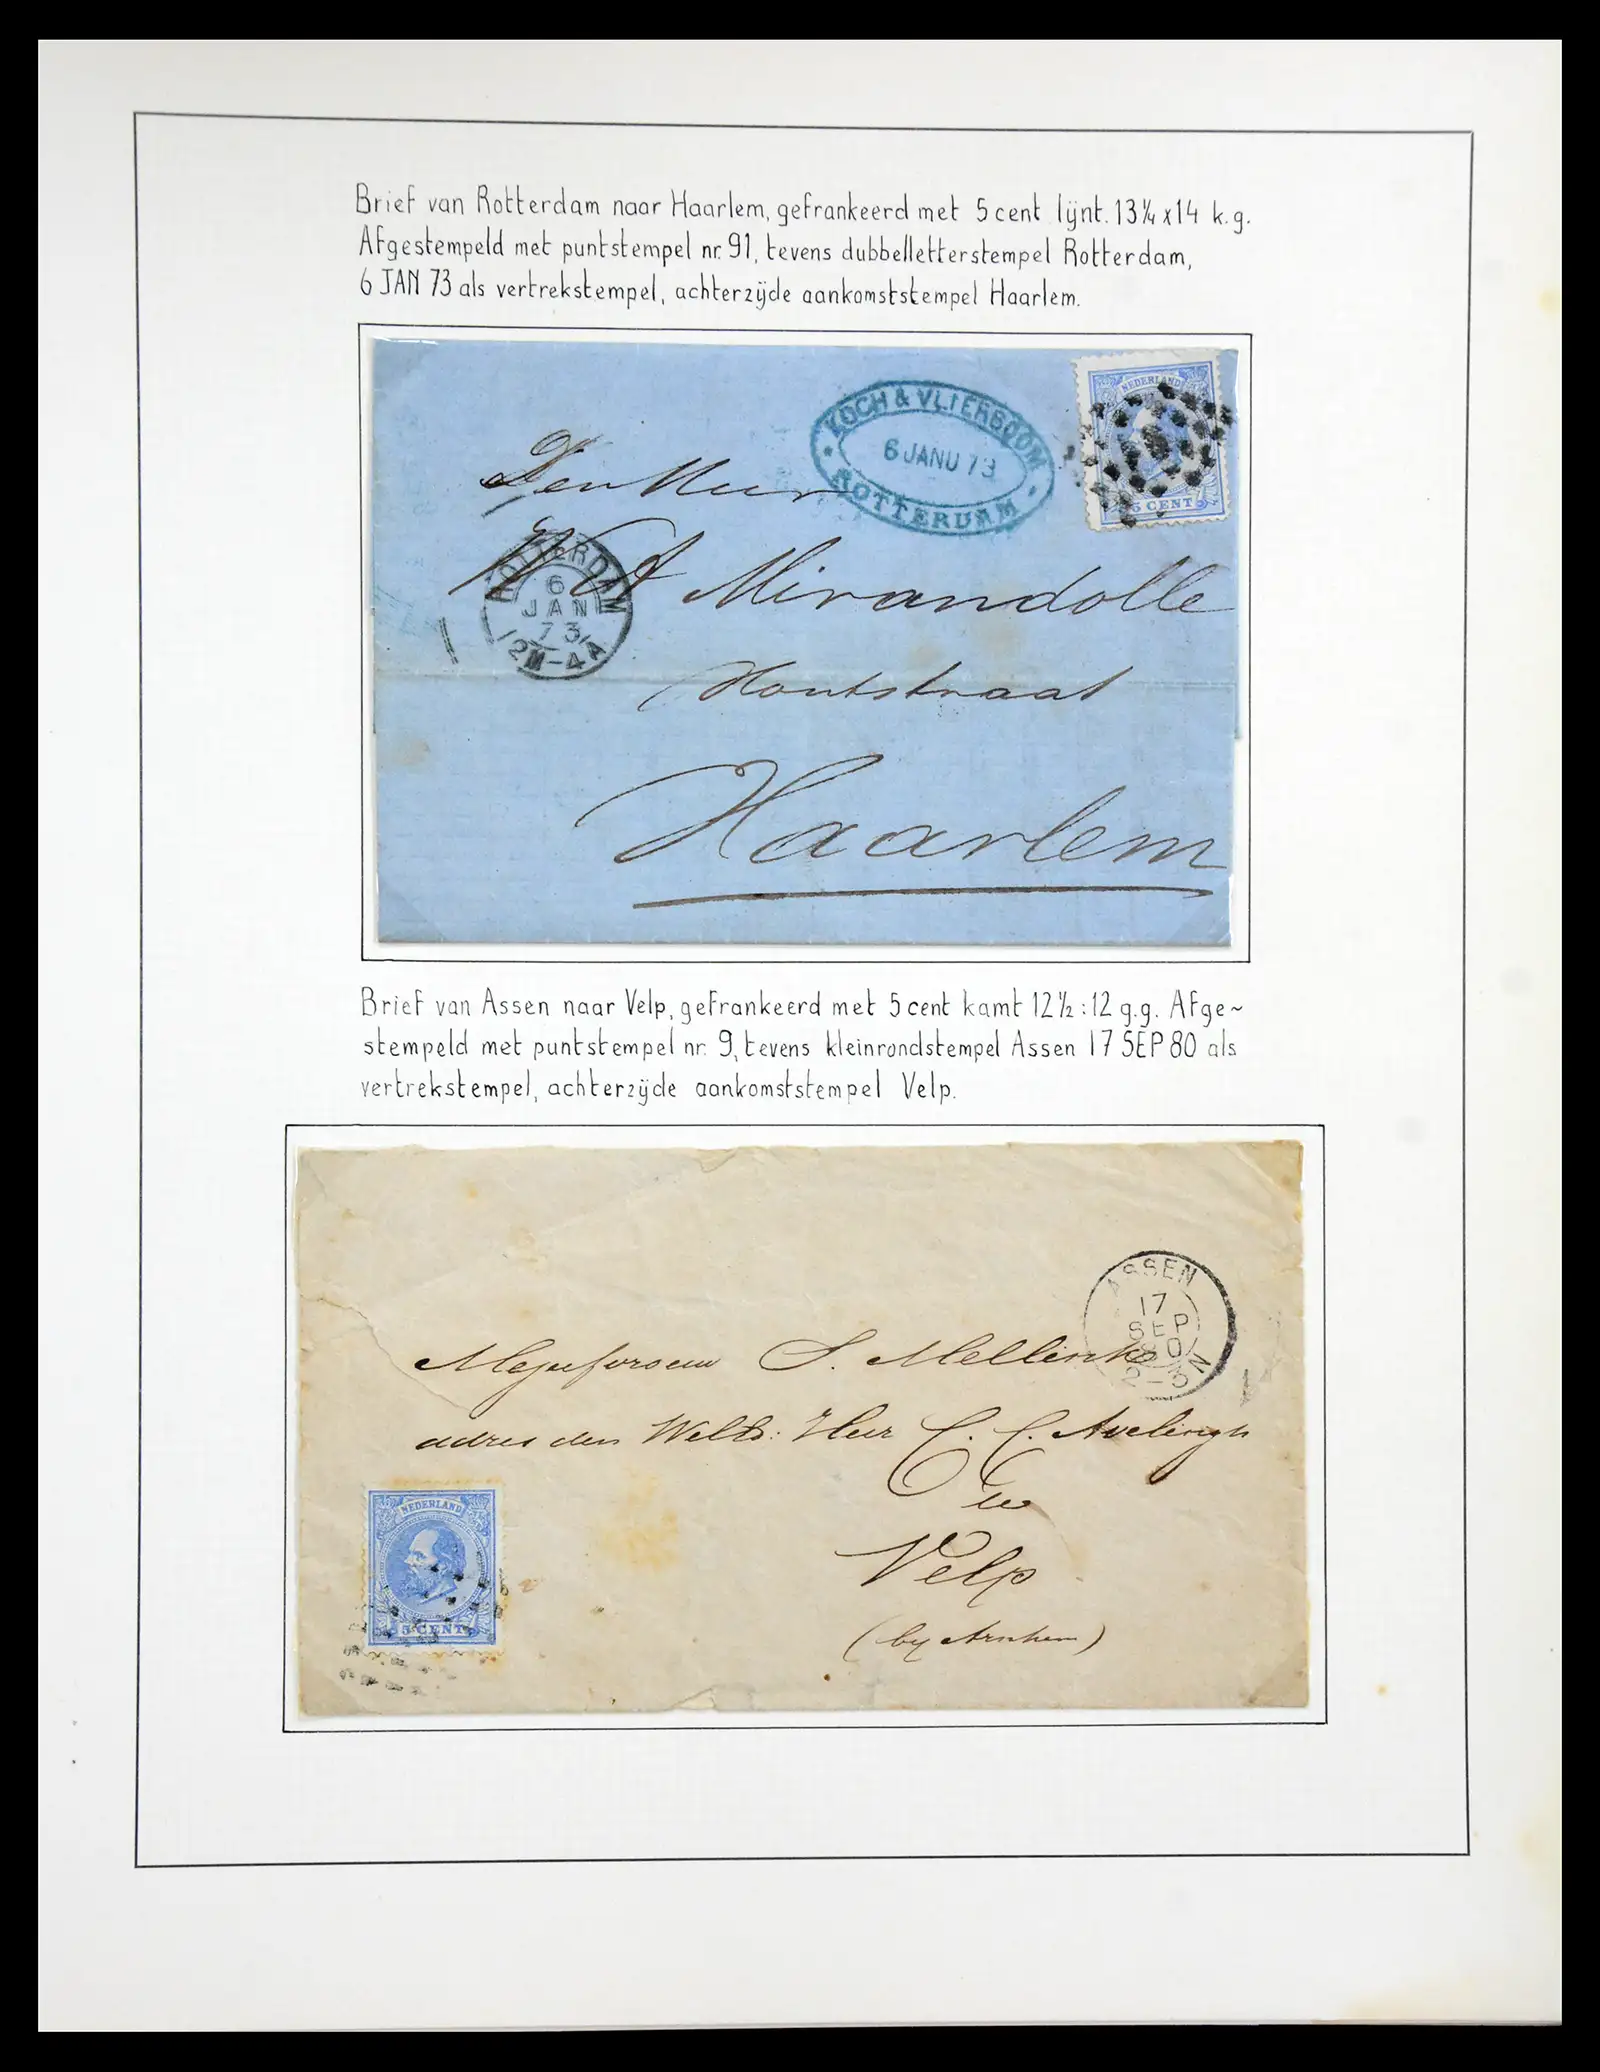 Brief van Rotterdam naar Haarlem, gefrankeerd met 5 cent lijnt. 13¼ x 14 k.g.
Afgestempeld met puntstempel nr. 91, tevens dubbelletterstempel Rotterdam,
6 JAN 73 als vertrekstempel, achterzijde aankomststempel Haarlem.
KOCH & VLIERBOOM
6 JANU 73
ROTTERDAM
NEDERLAND
5 CENT
Den Heer
Mirandolle
ROTTERDAM
6
JAN
73
12M-4A
Houtstraat
Haarlem
Brief van Assen naar Velp, gefrankeerd met 5 cent kamt 12½:12 g.g. Afge~
stempeld met puntstempel nr. 9, tevens kleinrondstempel Assen 17 SEP 80 als
vertrekstempel, achterzijde aankomststempel Velp.
ASSEN
17
SEP
80
2-3N
Mejufvrouw S. Mellink
adres den Heer C. C. Avelingh
te
Velp
(by Arnhem)
NEDERLAND
5 CENT